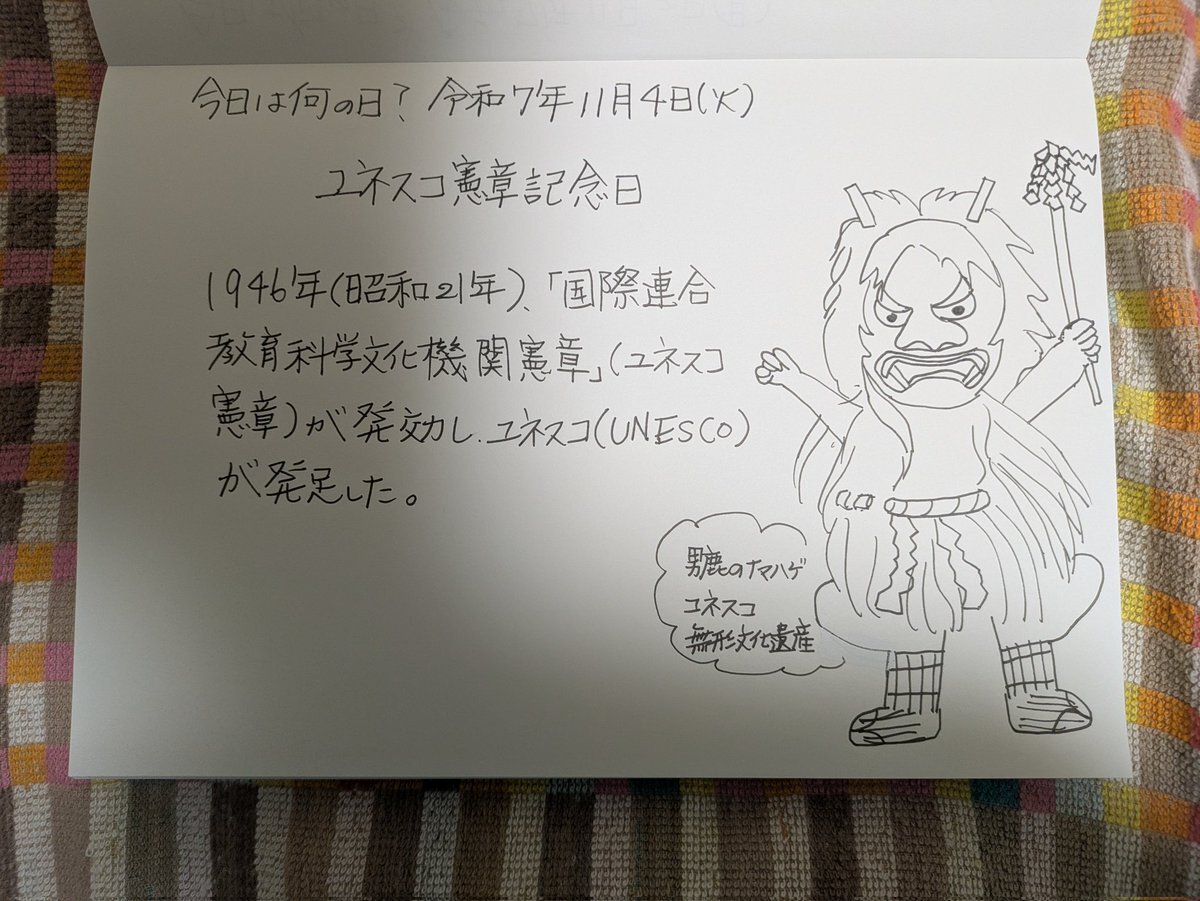 今日は何の日? 令和7年11月4日(火)
ユネスコ憲章記念日
1946年(昭和21年)、「国際連合
教育科学文化機関憲章」(ユネスコ
憲章)が発効し、ユネスコ(UNESCO)
が発足した。
男鹿のナマハゲ
ユネスコ
無形文化遺産